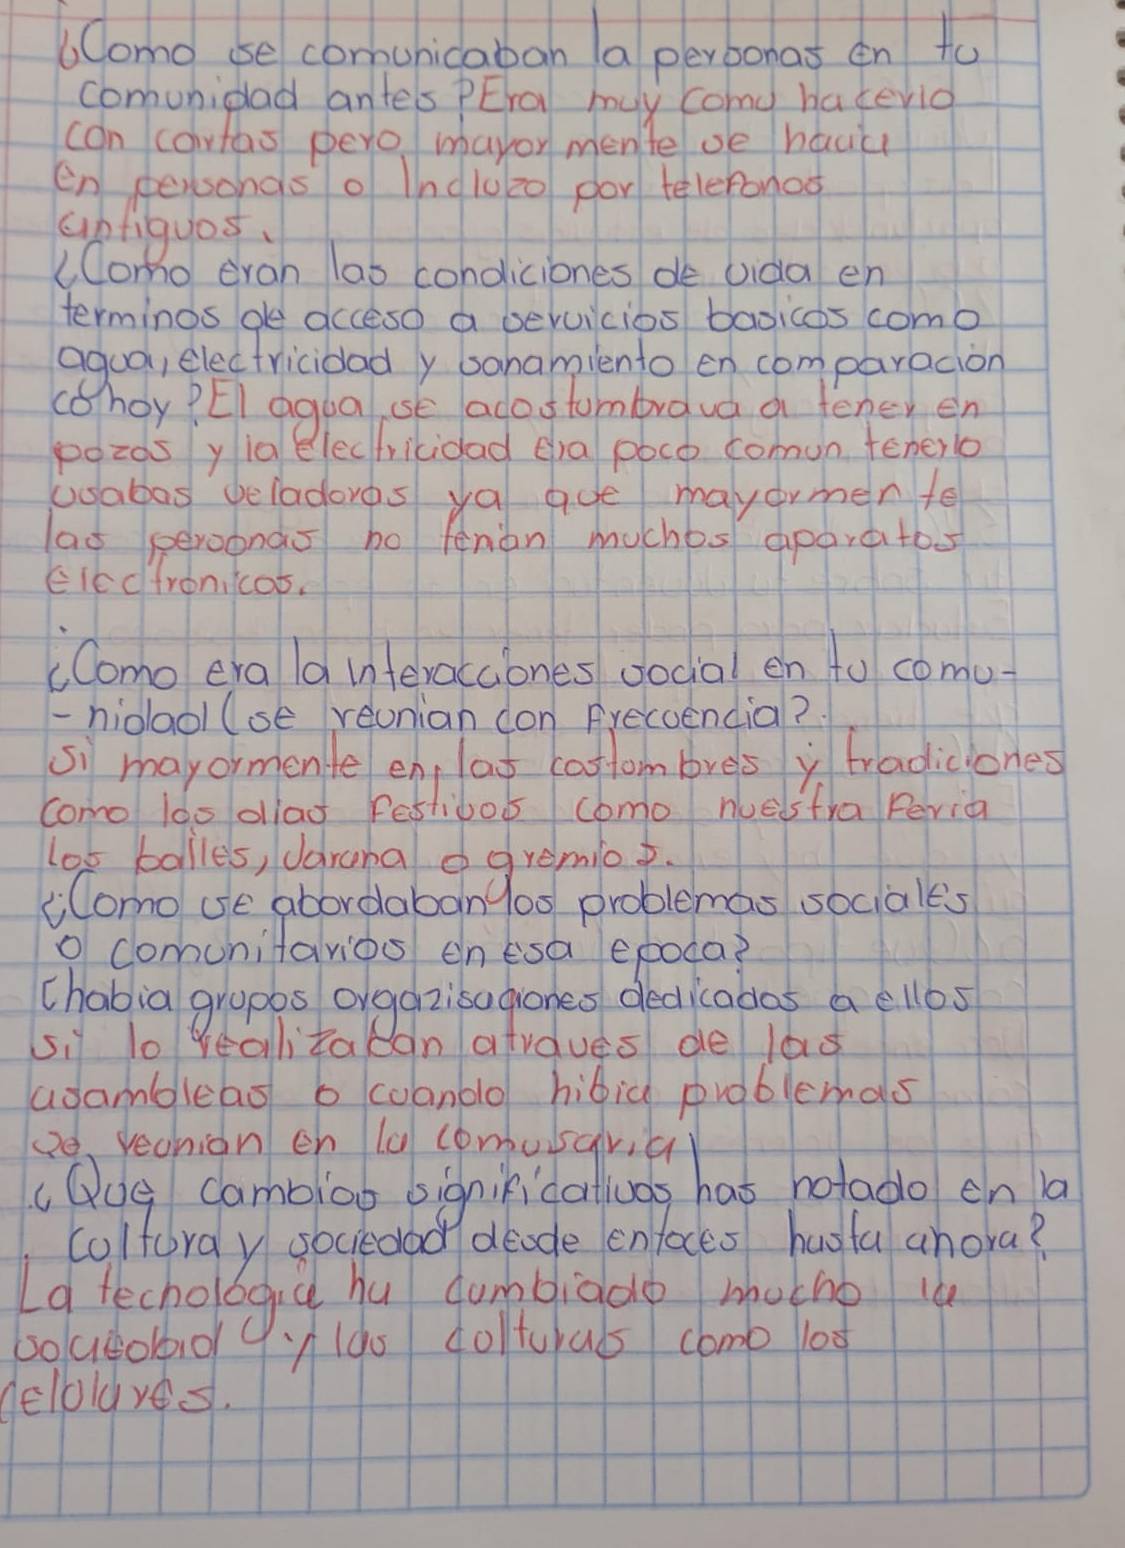 ¿Como se comunicaban la personas en tu
comunidad antes? Era muy comu hacerlo
con cartas pero mayor mente se hacia
en personas o Incluzo por telefonos
antiguos.
¿Como eran las condiciones de vida en
terminos de acceso a servicios basicos como
agua, electricidad y sanamiento en comparación
co hoy? El agua se acostumbrava a tener en
pozos y la electricidad era poco comun tenerlo
usabas veladoras ya que mayormente
las personas no tenian muchos aparatos
electronicos.
¿Como era la interacciones social en tu comu-
-nidad (se reunian con frecuencia?
si mayormente en las costombres y tradiciones
como los dias festivos como nuestra feria
los bailes, Jarana o gremios.
¿Como se abordaban los problemas sociales
o comunitarios en esa epoca?
(habia grupos orgazisaciones dedicados a ellos
si lo realizaban atraves de las
asambleas o cuando hibia problemas
se reunian en la comusaria
¿Que cambios significativos has notado en la
coltura y sociedad desde entoces hasta ahora?
La techologia ha cambiado mucho la
y las colturas como los
celolares.